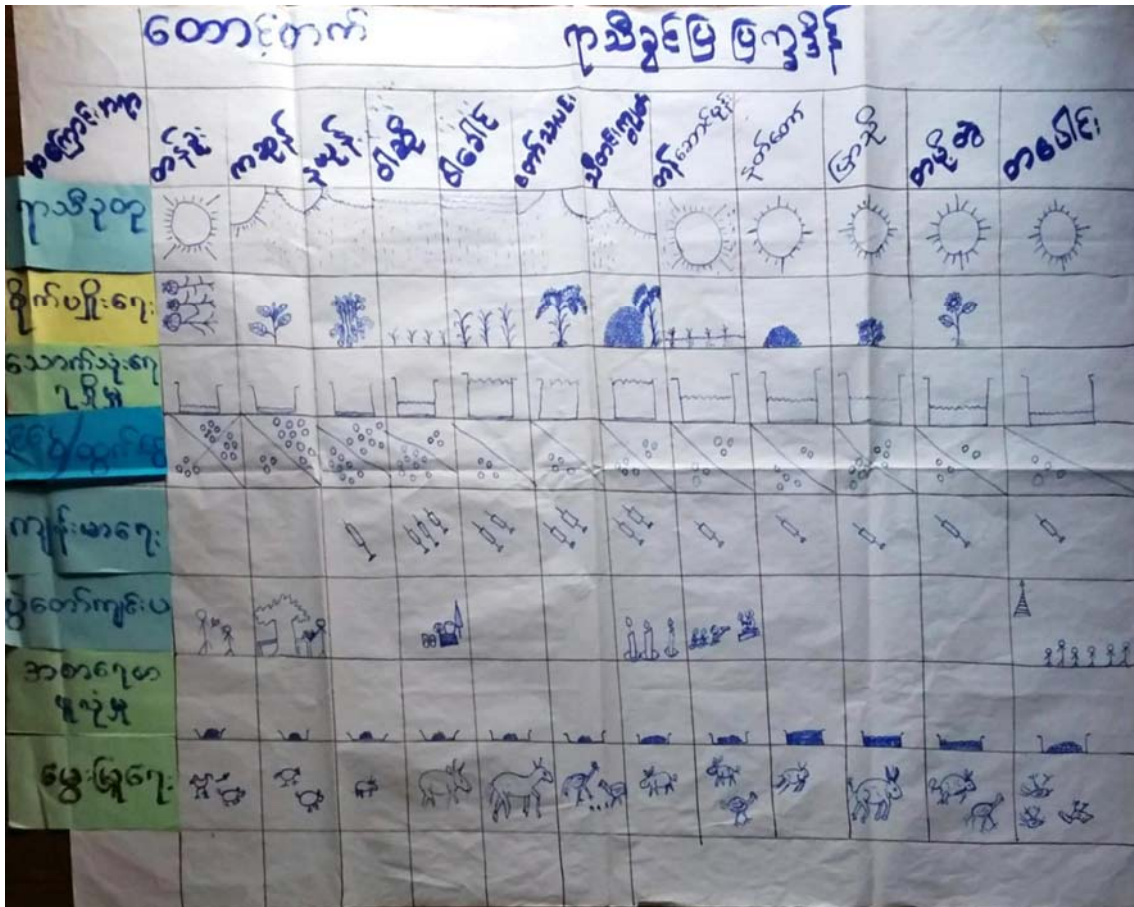 တောင်တက် ရာသီခွင်ပြ ပြက္ခဒိန်
အကြောင်းအရာ တန်ခူး ကဆုန် နယုန် ဝါဆို ဝါခေါင် တော်သလင်း သီတင်းကျွတ် တန်ဆောင်မုန်း နတ်တော် ပြာသို တပို့တွဲ တပေါင်း
ရာသီဥတု
စိုက်ပျိုးရေး
သောက်သုံးရေ
ရရှိမှု
ကျန်းမာရေး
ပွဲတော်ကျင်းပ
အစာရေစာ
ဖူလုံမှု
မွေးမြူရေး